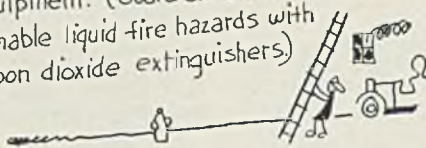 nable liquid fire hazards with
on dioxide extinguishers.)